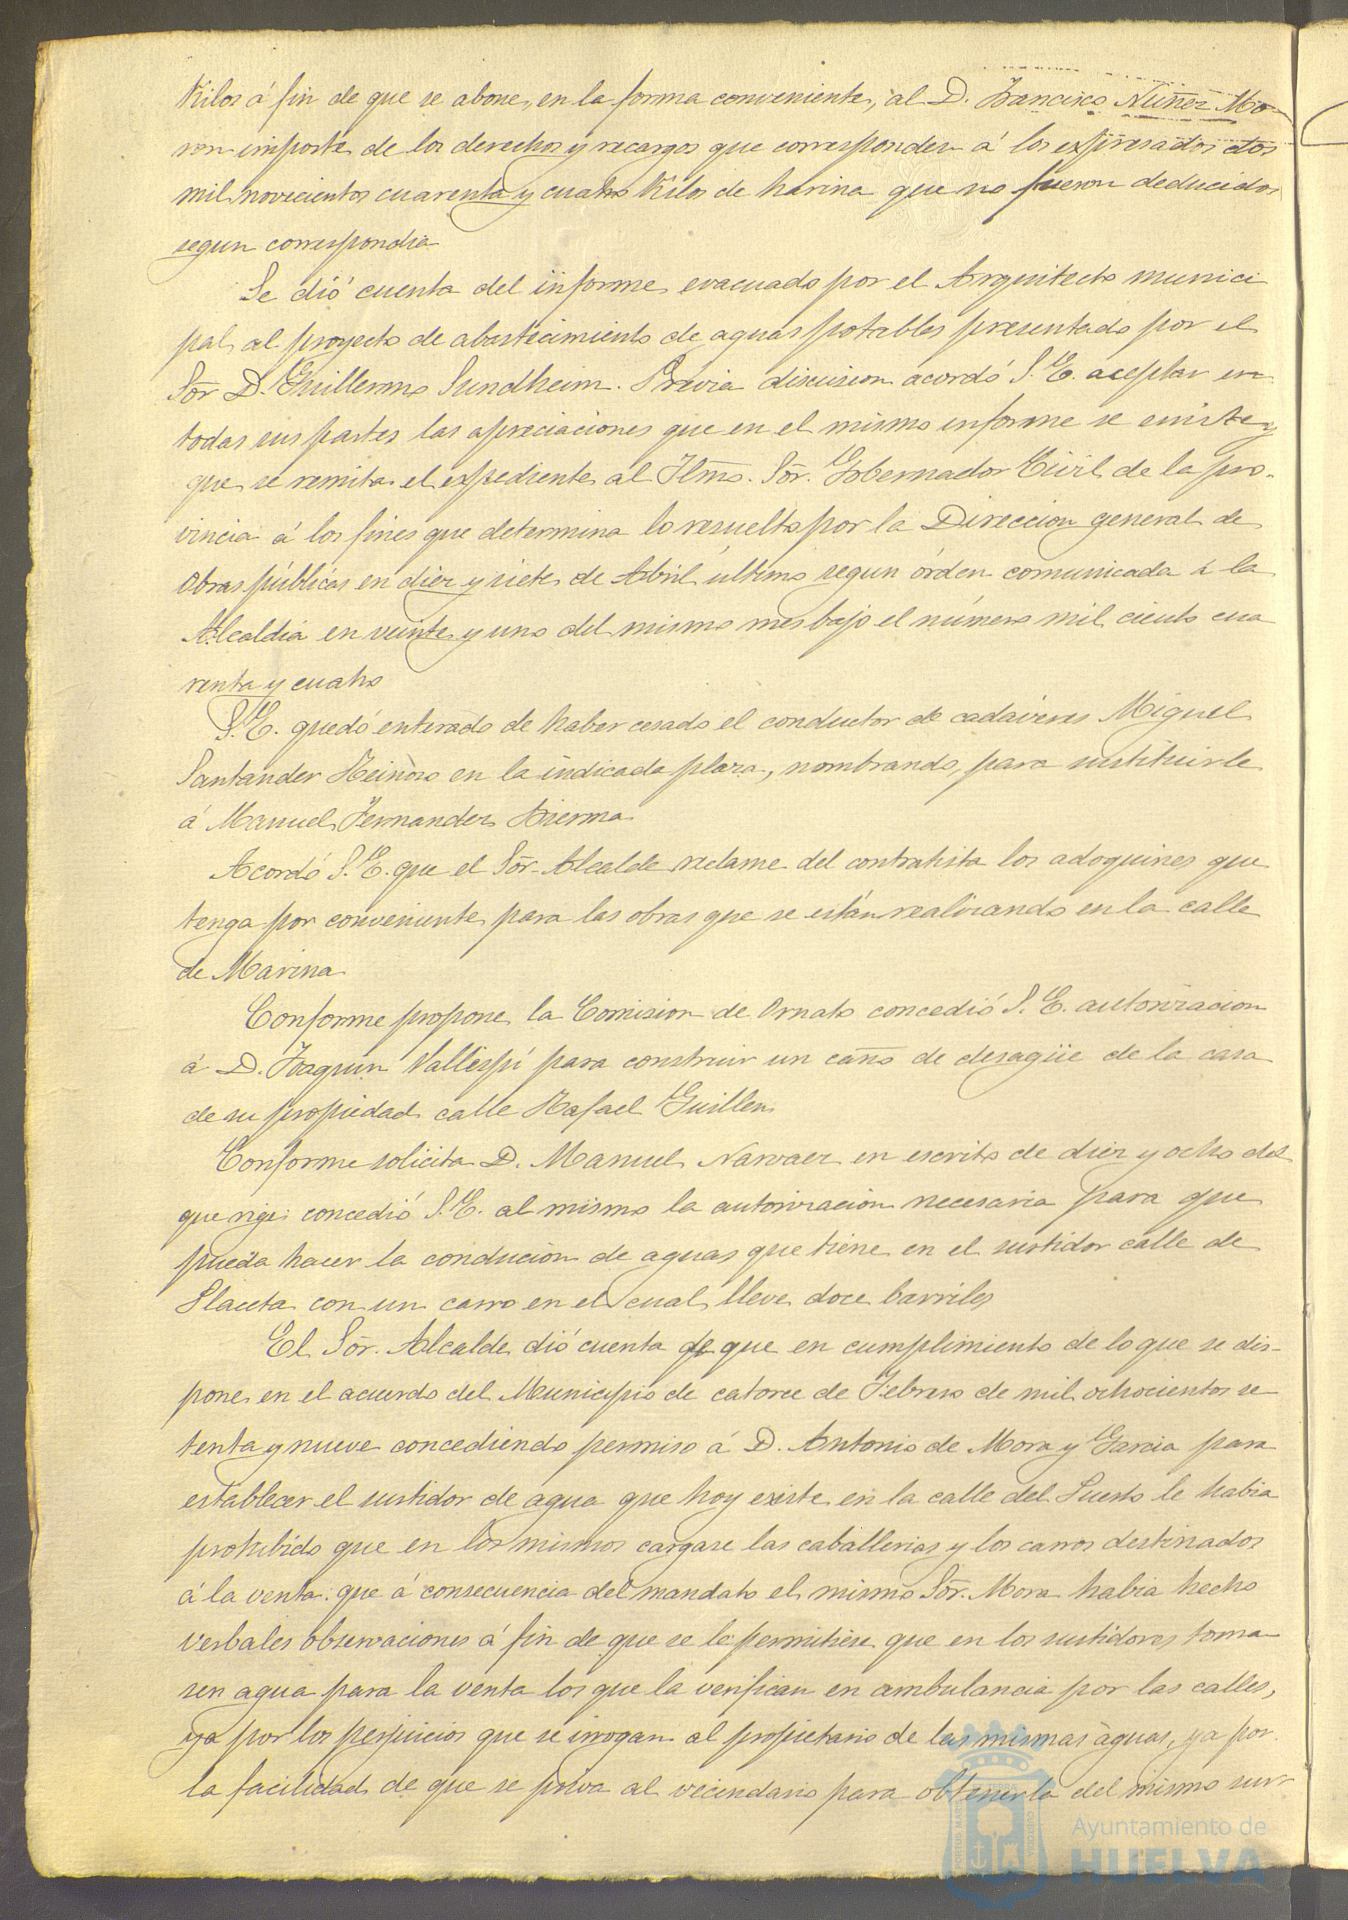 Kilos á fin de que se abone, en la forma conveniente, al D. Francisco Nuñez Mo-
ron importe de los derechos y recargos que corresponden á los expresados dos
mil novecientos cuarenta y cuatro Kilos de harina que no fueron deducidos
segun correspondia
Se dió cuenta del informe evacuado por el Arquitecto munici
pal al proyecto de abastecimiento de aguas potables presentado por el
Sōr D. Guillermo Sundheim. Previa discusion acordó S.E. aceptar en
todas sus partes las apreciaciones que en el mismo informe se emite y
que se remita el expediente al Iltmo. Sōr. Gobernador Civil de la pro-
vincia á los fines que determina lo resuelto por la Direccion general de
Obras públicas en diez y siete de Abril último segun órden comunicada á la
Alcaldia en veinte y uno del mismo mes bajo el número mil ciento cua
renta y cuatro
S.E. quedó enterado de haber cesado el conductor de cadáveres Miguel
Santander Reinoso en la indicada plaza, nombrando, para sustituirle
á Manuel Fernandez Bierma
Acordó S.E. que el Sōr. Alcalde reclame del contratista los adoquines que
tenga por conveniente para las obras que se están realizando en la calle
de Marina
Conforme propone la Comision de Ornato concedió S.E. autorizacion
á D. Joaquin Vallespí para construir un caño de desagüe de la casa
de su propiedad calle Rafael Guillen
Conforme solicita D. Manuel Narvaez en escrito de diez y ocho del
que rige concedió S.E. al mismo la autorizacion necesaria para que
pueda hacer la conducion de aguas que tiene en el surtidor calle de
Placeta con un carro en el cual lleve doce barriles
El Sōr. Alcalde dió cuenta de que en cumplimiento de lo que se dis-
pone en el acuerdo del Municipio de catorce de Febrero de mil ochocientos se
tenta y nueve concediendo permiso á D. Antonio de Mora y Garcia para
establecer el surtidor de agua que hoy existe en la calle del Puerto le habia
prohibido que en los mismos cargase las caballerias y los carros destinados
á la venta: que á consecuencia del mandato el mismo Sōr. Mora habia hecho
verbales observaciones á fin de que se le permitiese que en los surtidores toma
sen agua para la venta los que la verifican en ambulancia por las calles,
ya por los perjuicios que se irrogan al propietario de las mismas aguas, ya por
la facilidad de que se priva al vecindario para obtenerla del mismo sur-
Ayuntamiento de
HUELVA